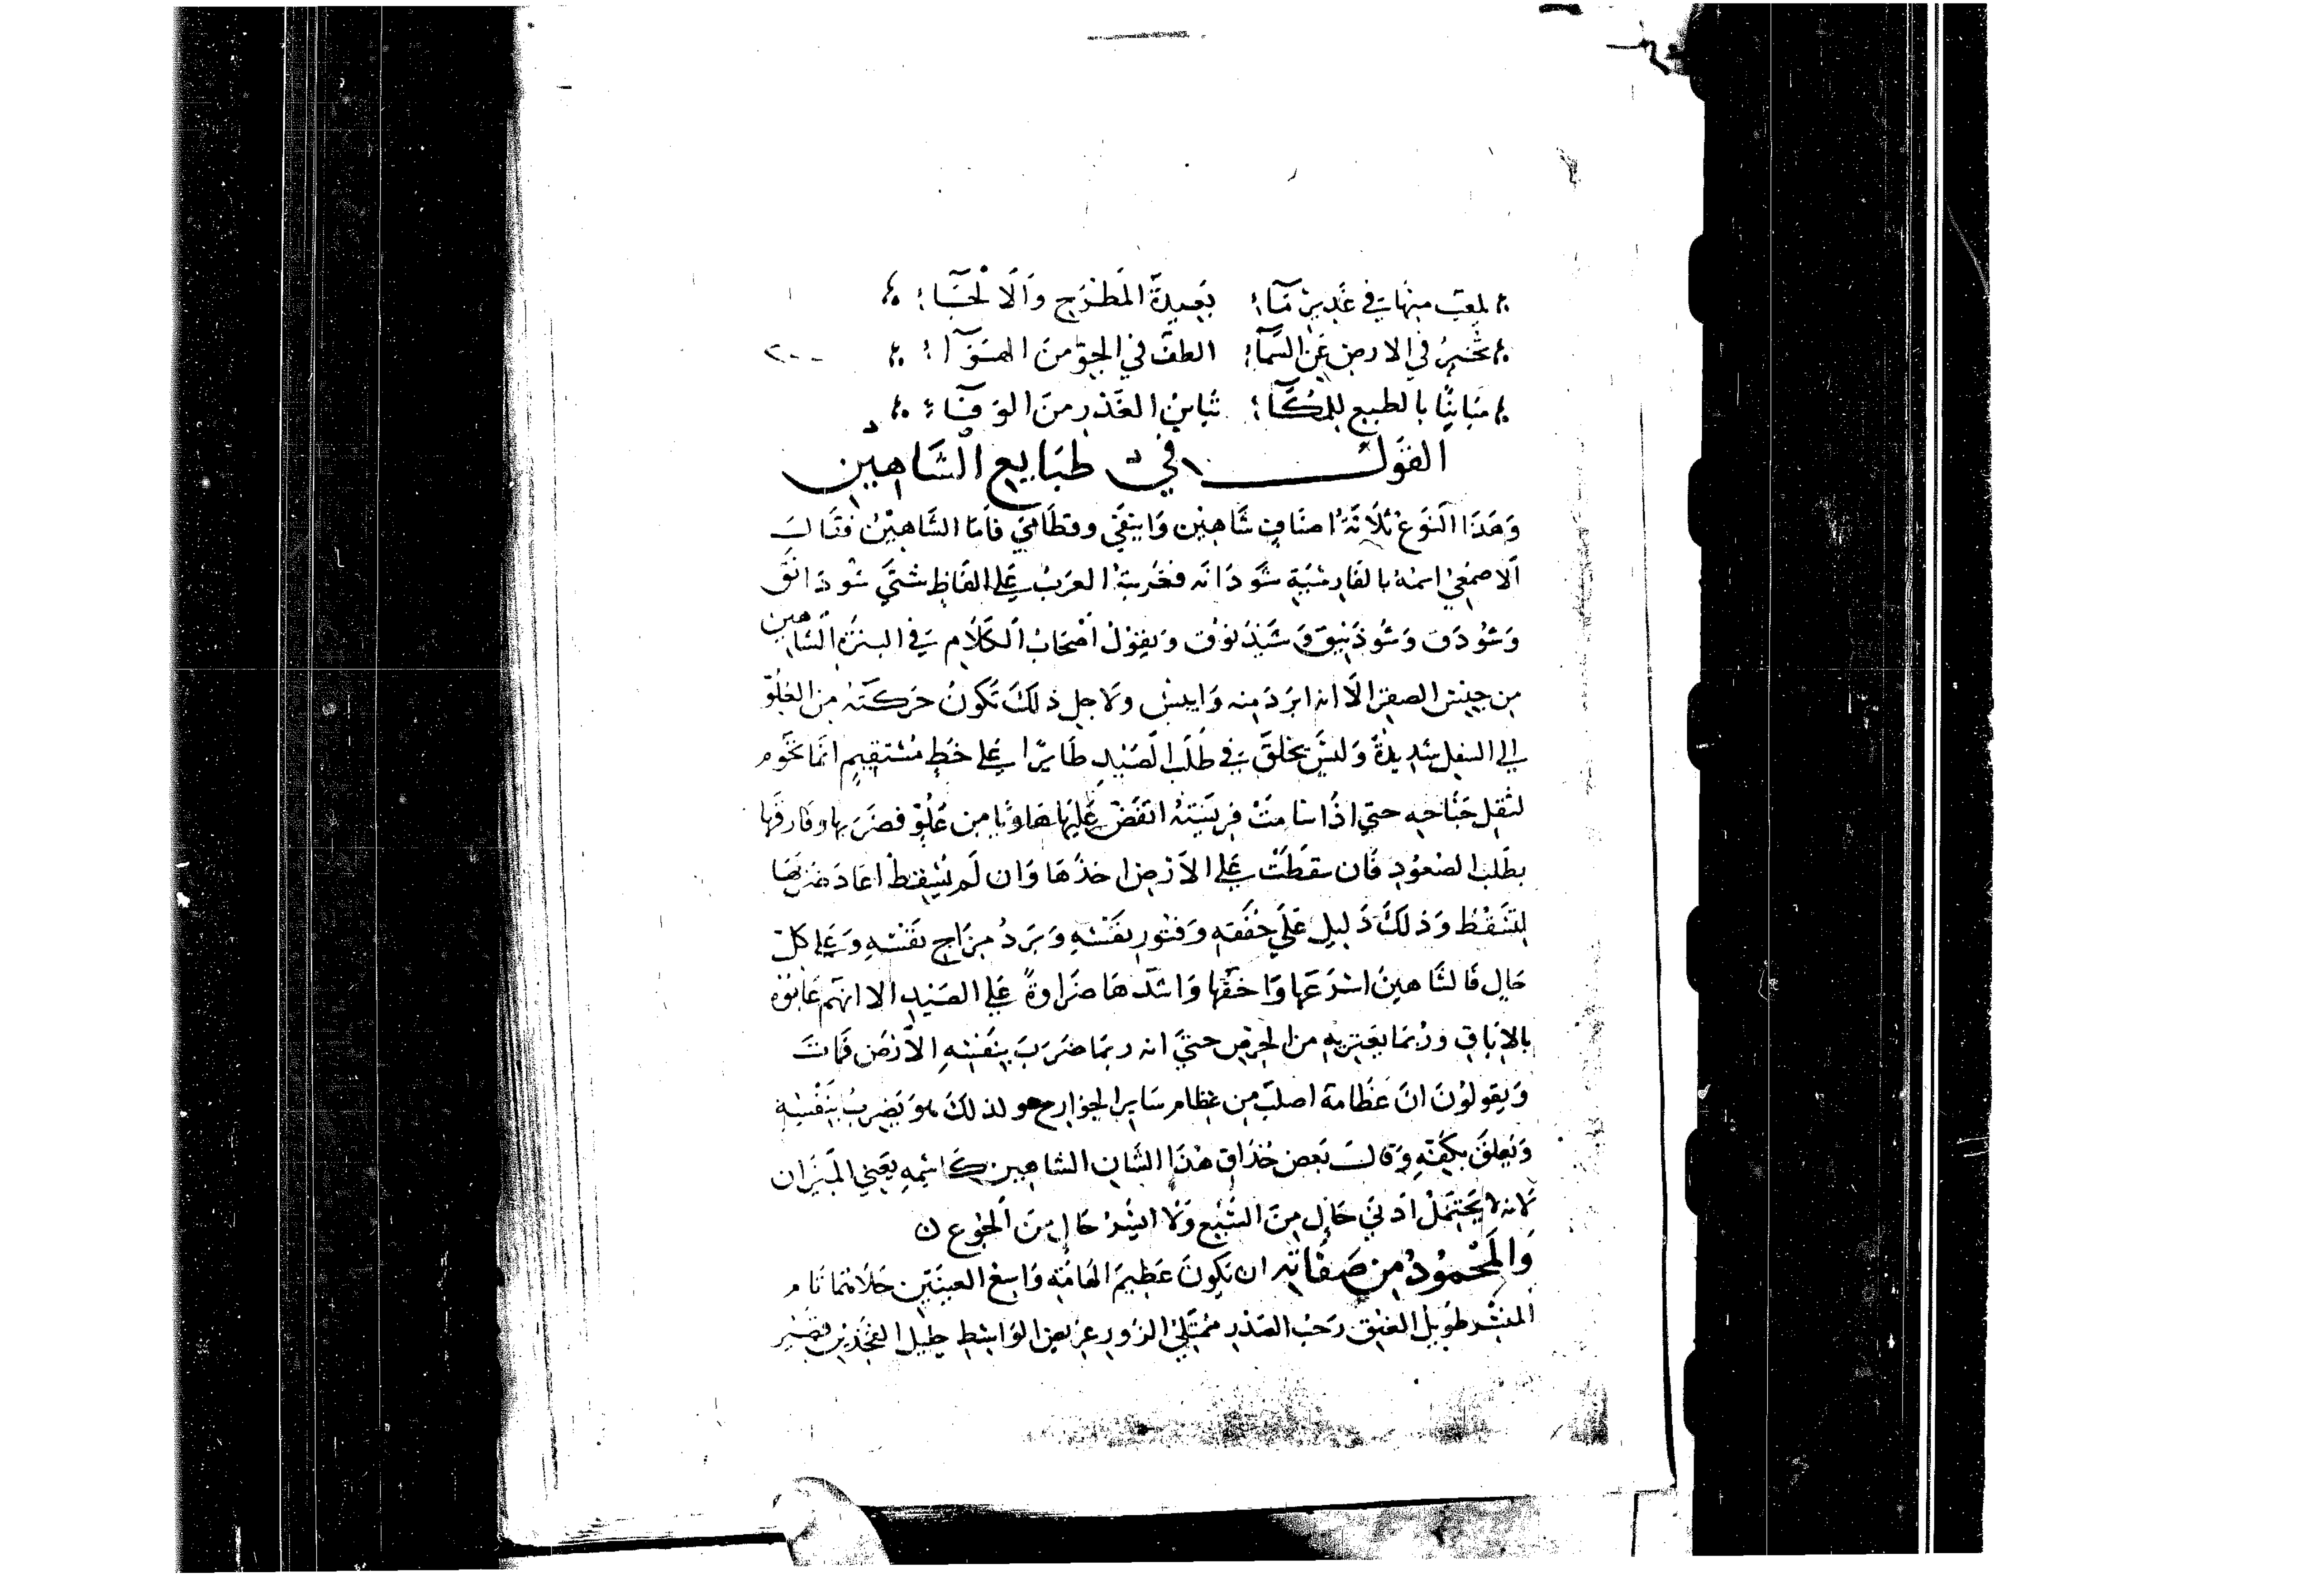 يلعب منها في غدير ماء بعيدة المطرح والارجاء
تخبر في الارض عن السماء الطف في الجو من الهواء
٢٠٠
مباينا بالطبع للمكاء تباين الغدر من الوفاء
القول في طبايع الشاهين
وَهَذا النوع ثلاثة اصناف شاهين وانيقي وقطامي فاما الشاهين فقال
الاصمعي اسمه بالفارسية شوذانه فعربته العرب على الفاظ شتى شوذانق
وشوذق وشوذنيق وشيذنوق ويقول اصحاب الكلام في البيزرة الشاهين
من جنس الصقر الا انه ابرد منه وايبس ولاجل ذلك تكون حركته من العلو
الي السفل شديدة وليس يحلق في طلب الصيد طايرا علي خط مستقيم انما يحوم
لثقل جناحه حتي اذا سامت فريسته انقض عليها هاويا من علو فضربها وفارقها
بطلب الصعود فان سقطت علي الارض اخذها وان لم تسقط اعاد ضربها
لتسقط وذلك دليل علي خفقه وفتور نفسه وبرد مزاج نفسه وعلي كل
حال فالشاهين اسرعها واخفها واشدها ضراوة علي الصيد الا انهم عابوه
بالاباق وربما يعتريه من الحرص حتي انه ربما ضرب بنفسه الارض فمات
ويقولون ان عظامه اصلب من عظام ساير الجوارح ولذلك هو يضرب بنفسه
ويعلق بكفه وقال بعض حذاق هذا الشان الشاهين كاسمه يعني الميزان
لانه لا يحتمل ادني حال من الشبع ولا ايسر حال من الجوع ن
والمحمود من صفاته ان يكون عظيم الهامة واسع العينين حادهما تام
المنسر طويل العنق رحب الصدر ممتلئ الزور عريض الواسط جليل الفخذين قصير